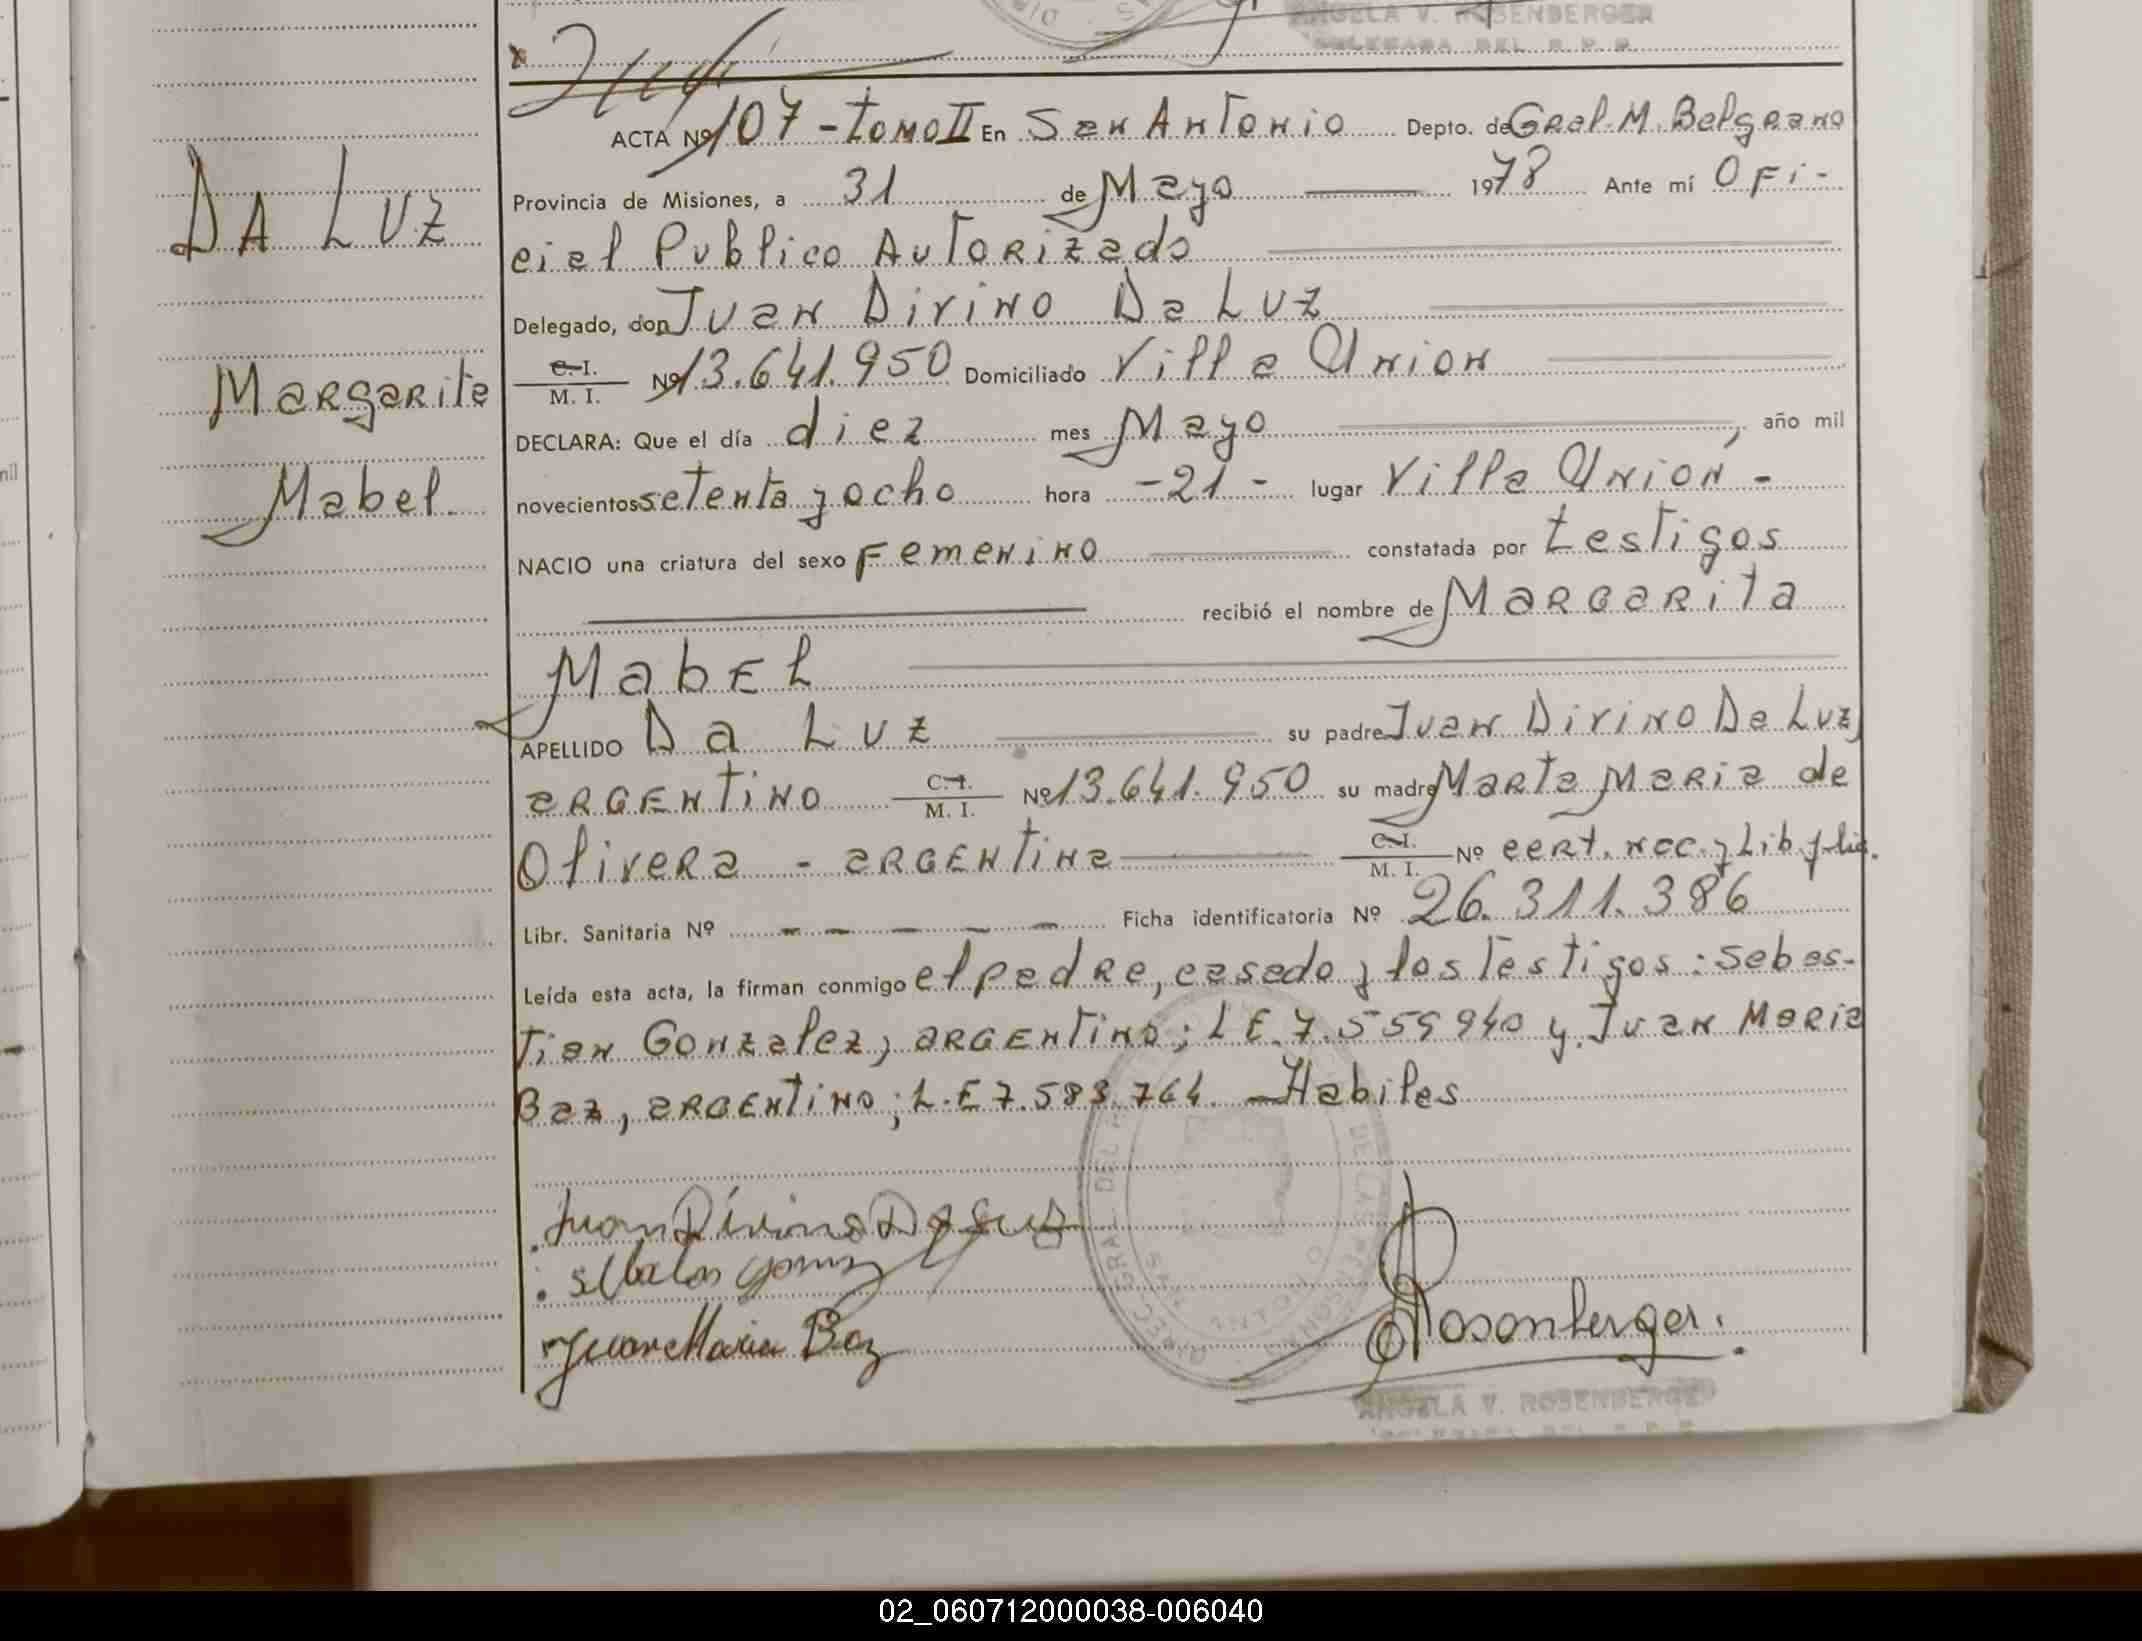 ANGELA V. ROSENBERGER
DELEGADA DEL R. P. P.
ACTA Nº 107 - tomo II En San Antonio Depto. de Gral. M. Belgrano
Provincia de Misiones, a 31 de Mayo 1978 Ante mí Ofi-
cial Publico Autorizado
Delegado, don Juan Divino Da Luz
C. I. / M. I. Nº 13.641.950 Domiciliado Villa Union
DECLARA: Que el día diez mes Mayo, año mil
novecientos setenta y ocho hora -21- lugar Villa Union -
NACIO una criatura del sexo Femenino constatada por testigos
recibió el nombre de Margarita
Mabel
APELLIDO Da Luz su padre Juan Divino Da Luz
argentino C. I. / M. I. Nº 13.641.950 su madre Marta Maria de
Olivera - argentina C. I. / M. I. Nº cert. nac. y Lib.
Libr. Sanitaria Nº - - - - - Ficha identificatoria Nº 26.311.386
Leída esta acta, la firman conmigo el padre, casado y los testigos: Sebas-
tian Gonzalez, argentino; L E. 7.559940 y Juan Maria
Baz, argentino; L.E 7.583.764. - Habiles
DA LUZ
Margarita
Mabel.
Juan Divino Da Luz
Juan Maria Baz
Rosenberger.
ANGELA V. ROSENBERGER
02_060712000038-006040